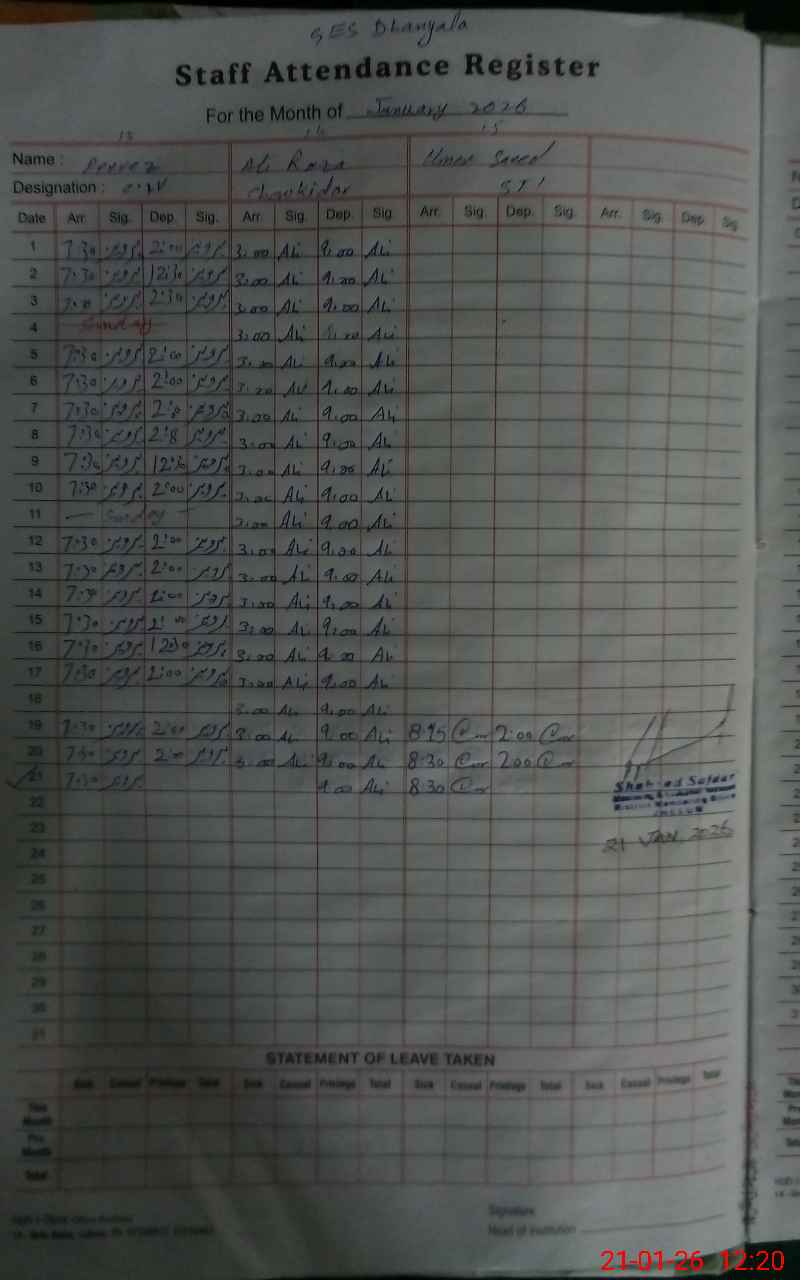 GES Dhanyala
Staff Attendance Register
For the Month of January 2026
13 14 15
Name : Pervez Ali Raza Umar Saeed
Designation : Chowkidar STI
Date Arr. Sig. Dep. Sig. Arr. Sig. Dep. Sig. Arr. Sig. Dep. Sig. Arr. Sig. Dep. Sig
1 7:30 پرویز 2:00 پرویز 3.00 Ali 9.00 Ali
2 7:30 پرویز 12:30 پرویز 3.00 Ali 9.00 Ali
3 پرویز 2:30 پرویز 3.00 Ali 9.00 Ali
4 Sunday 3.00 Ali Ali
5 7:30 پرویز 2:00 پرویز 3.00 Ali 9.00 Ali
6 7:30 پرویز 2:00 پرویز 3.00 Ali 9.00 Ali
7 7:30 پرویز پرویز 3.00 Ali 9.00 Ali
8 7:30 پرویز پرویز 3.00 Ali 9.00 Ali
9 7:30 پرویز پرویز 3.00 Ali 9.00 Ali
10 7:30 پرویز 2:00 پرویز 3.00 Ali 9.00 Ali
11 — Sunday — 3.00 Ali 9.00 Ali
12 7:30 پرویز 2:00 پرویز 3.00 Ali 9.00 Ali
13 7:30 پرویز 2:00 پرویز 3.00 Ali 9.00 Ali
14 7:30 پرویز 2:00 پرویز 3.00 Ali 9.00 Ali
15 7:30 پرویز 2:00 پرویز 3.00 Ali 9.00 Ali
16 7:30 پرویز 12:30 پرویز 3.00 Ali 9.00 Ali
17 7:30 پرویز 2:00 پرویز 3.00 Ali 9.00 Ali
18 3.00 Ali 9.00 Ali
19 7:30 پرویز 2:00 پرویز 3.00 Ali 9.00 Ali 8:15 2:00
20 7:30 پرویز 2:00 پرویز 3.00 Ali 9.00 Ali 8:30 2:00
21 7:30 پرویز 9.00 Ali 8:30
Shahzad Safdar
22
23
21 JAN 2026
24
25
26
27
28
29
30
31
STATEMENT OF LEAVE TAKEN
Sick Casual Privilege Total Sick Casual Privilege Total Sick Casual Privilege Total Sick Casual Privilege Total
This Month
Pre. Month
Total
Signature
Head of Institution
21-01-26 12:20